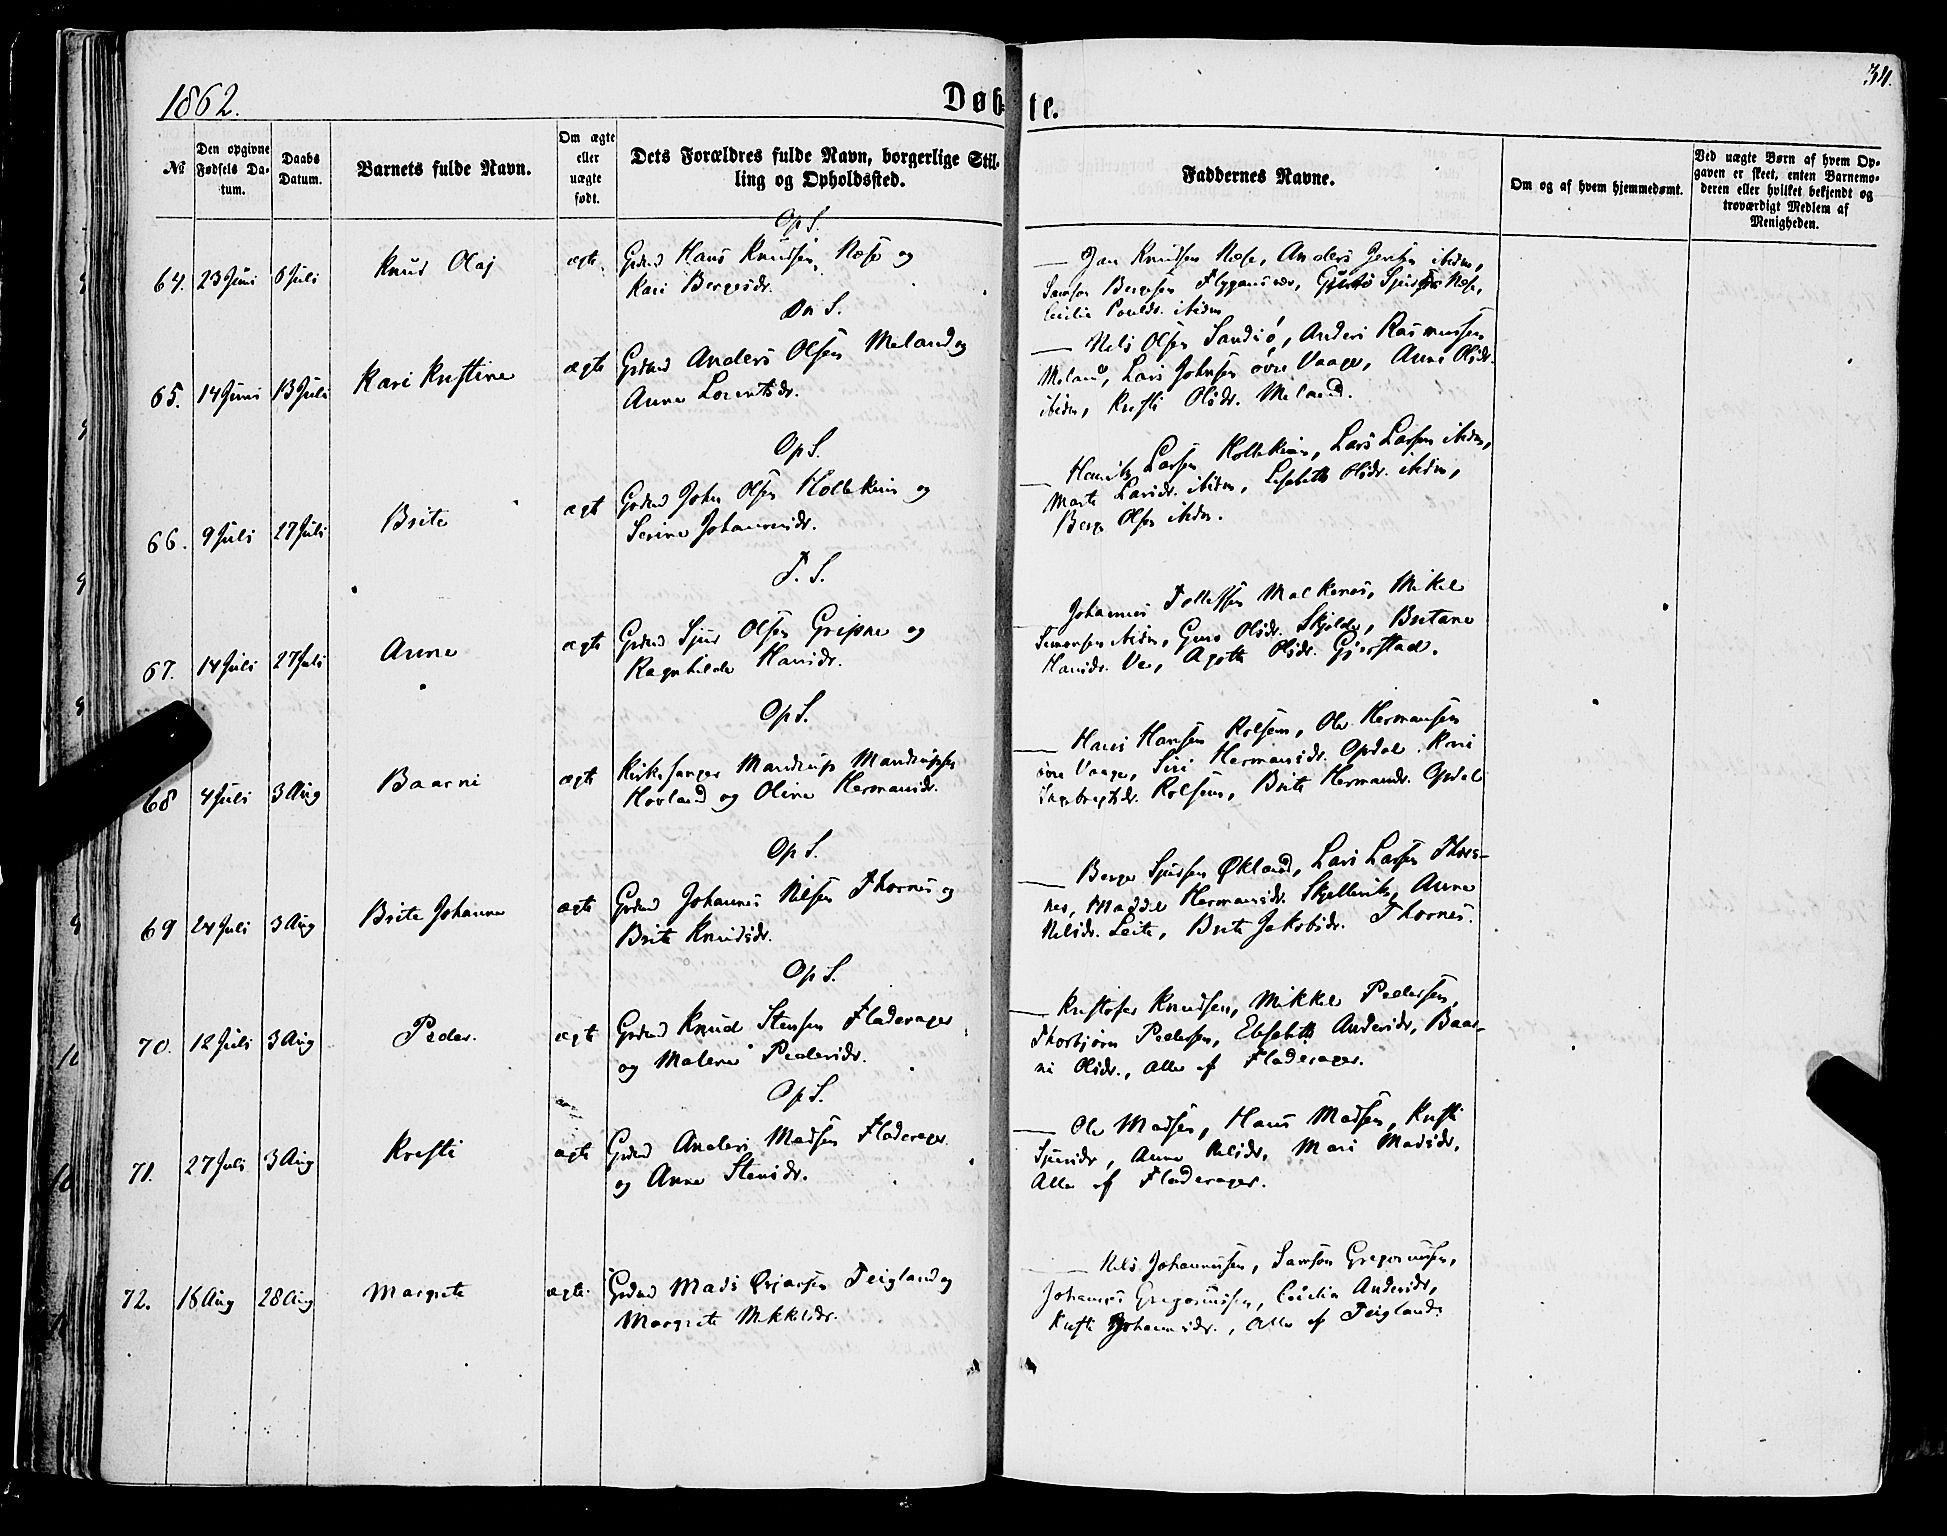 1862.
Døbte.
34.
№
Den opgivne Fødsels Datum.
Daabs Datum.
Barnets fulde Navn.
Om ægte eller uægte født.
Dets Forældres fulde Navn, borgerlige Stilling og Opholdssted.
Faddernes Navne.
Om og af hvem hjemmedøbt.
Ved uægte Børn af hvem Opgaven er skeet, enten Barnemoderen eller hvilket bekjendt og troværdigt Medlem af Menigheden.
Op S.
64. 23 Juni 6 Juli Knud Olaj ægte Grdmd Hans Knudsen Næse og
Kari Bergesdr.
Jan Knudsen Næse, Anders ibidm,
Samson Bergesen Flygansvær, Næse,
Cecilia Poulsdr. ibidm
S.
65. 14 Juni 13 Juli Kari Kristine ægte Grdmd Anders Olsen Meland og
Anne Lorentsdr.
Nils Olsen Sandiø, Anders Rasmussen
Meland, Lars Johnsen øvre Vaage, Anne Olsdr.
ibidm, Kristi Olsdr. Meland.
Op S.
66. 9 Juli 27 Juli Brite ægt Grdmd John Olsen Kolleknes og
Serine Johannesdr.
Larsen Kolleknes, Lars Larsen ibidm,
Marte Larsdr. ibidm, Lisebeth Olsdr. ibidm,
Berge Olsen ibidm.
T. S.
67. 14 Juli 27 Juli Anne ægte Grdmd Sjur Olsen Gripne og
Ragnhilde Hansdr.
Johannes Tollefsen Malkenes, Mikel
Simonsen ibidm, Guro Olsdr. Skjelde, Britane
Hansdr. Ve, Agethe Olsdr. Gjerstad.
Op S.
68 4 Juli 3 Aug Baarni ægte Kirkesanger Mandrup Mandrupsen
Hovland og Oline Hermansdr.
Hans Hansen Rolsem, Ole Hermansen
øvre Vaage, Siri Hermansdr. Opdal, Kari
Ingebregtsdr. Rolsem, Brite Hermansdr. Opdal
Op S.
69 24 Juli 3 Aug Brite Johanne ægte Grdmd Johannes Nilsen Thornes og
Brite Knudsdr.
Berge Sjursen Økland, Lars Larsen Thor-
nes, Maddel Hermansdr. Skjellevik, Anne
Nilsdr. Leite, Brite Jakobsdr. Thornes.
Op S.
70. 12 Juli 3 Aug Peder. ægte Grdmd Knud Stensen Fladerager
og Malene Pedersdr.
Kristofer Knudsen, Mikkel Pedersen,
Thorbjørn Pedersen, Elsebeth Andersdr, Baar-
ni Olsdr., Alle af Fladerager.
Op S.
71. 27 Juli 3 Aug Kristi ægte Grdmd Anders Madsen Fladerager
og Anne Stensdr.
Ole Madsen, Hans Madsen, Kristi
Sjursdr, Anne Nilsdr, Mari Madsdr,
Alle af Fladerager.
72. 16 Aug 28 Aug Margrete ægte Grdmd Mads Ørjansen Teigland og
Margrete Mikkelsdr.
Nils Johannessen, Samson Gregoriussen,
Johannes Gregoriussen, Cecilia Andersdr,
Kristi Johannesdr., Alle af Teigland.